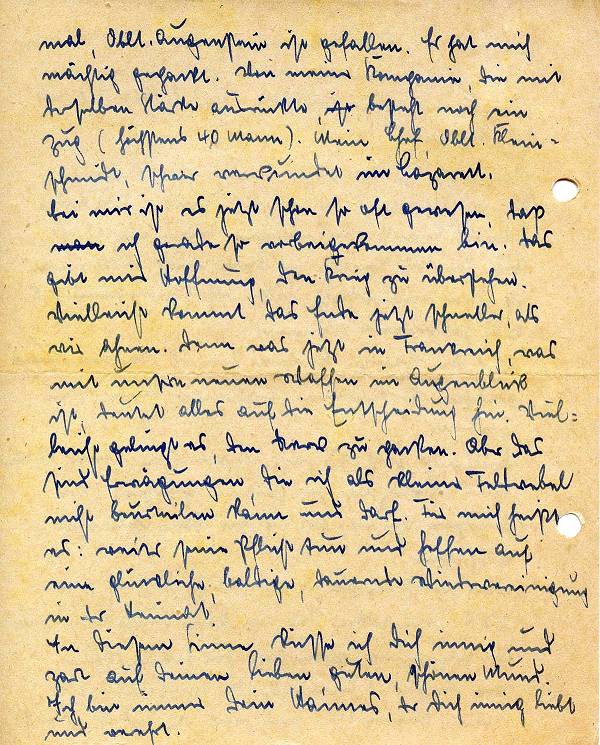 mal, Oblt. Augenstein ist gefallen. Er hat mich
mächtig gepackt. Von meiner Kompanie, die mit
derselben Stärke ausrückte, besteht noch ein
Zug (höchstens 40 Mann). Mein Chef, Oblt. Klein-
schmidt, schwer verwundet im Lazarett.
Bei mir ist es jetzt schon so oft gewesen, daß
ich gerade so vorbeigekommen bin. Das
gibt mir Hoffnung, den Krieg zu überstehen.
Vielleicht kommt das Ende jetzt schneller, als
wir ahnen. Denn was jetzt in Frankreich, was
mit unseren neuen Waffen im Augenblick
ist, deutet alles auf die Entscheidung hin. Viel=
leicht gelingt es, den zu. Aber das
sind Erwägungen, die ich als kleiner Feldwebel
nicht beurteilen kann und darf. Für mich heißt
es: weiter seine Pflicht tun und hoffen auf
eine glückliche, baldige, dauernde Wiedervereinigung
in der Heimat.
In diesem Sinne küsse ich Dich innig und
zart auf Deinen lieben guten, schönen Mund.
Ich bin immer Dein Hannes, der Dich innig liebt
und verehrt.